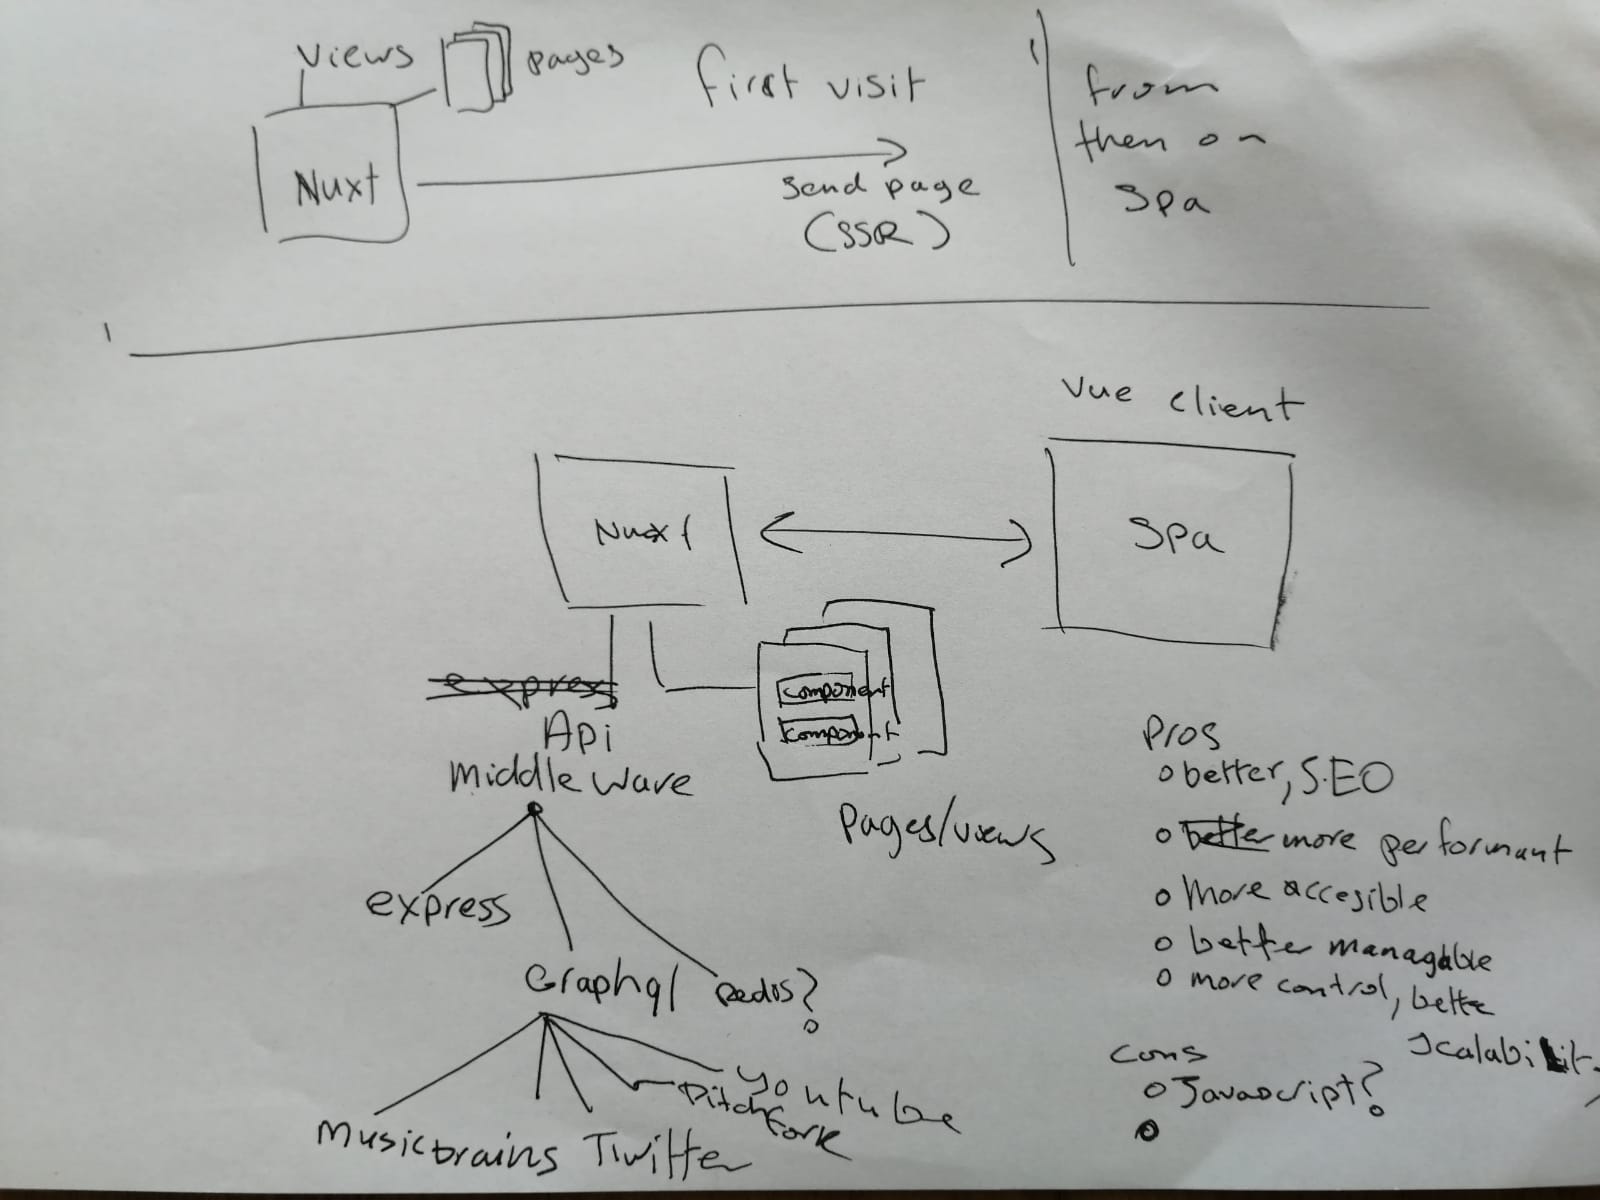 Views
pages
first visit
Nuxt
send page
(SSR)
from
then on
Spa
Vue client
Nuxt
Spa
express
Api
Middleware
component
component
Pages/views
express
Graphql
Redis?
Musicbrains
Twitter
Pitch
fork
Youtube
Pros
better, SEO
better more performant
More accesible
better managable
more control, better
Scalabilit
Cons
Javascript?